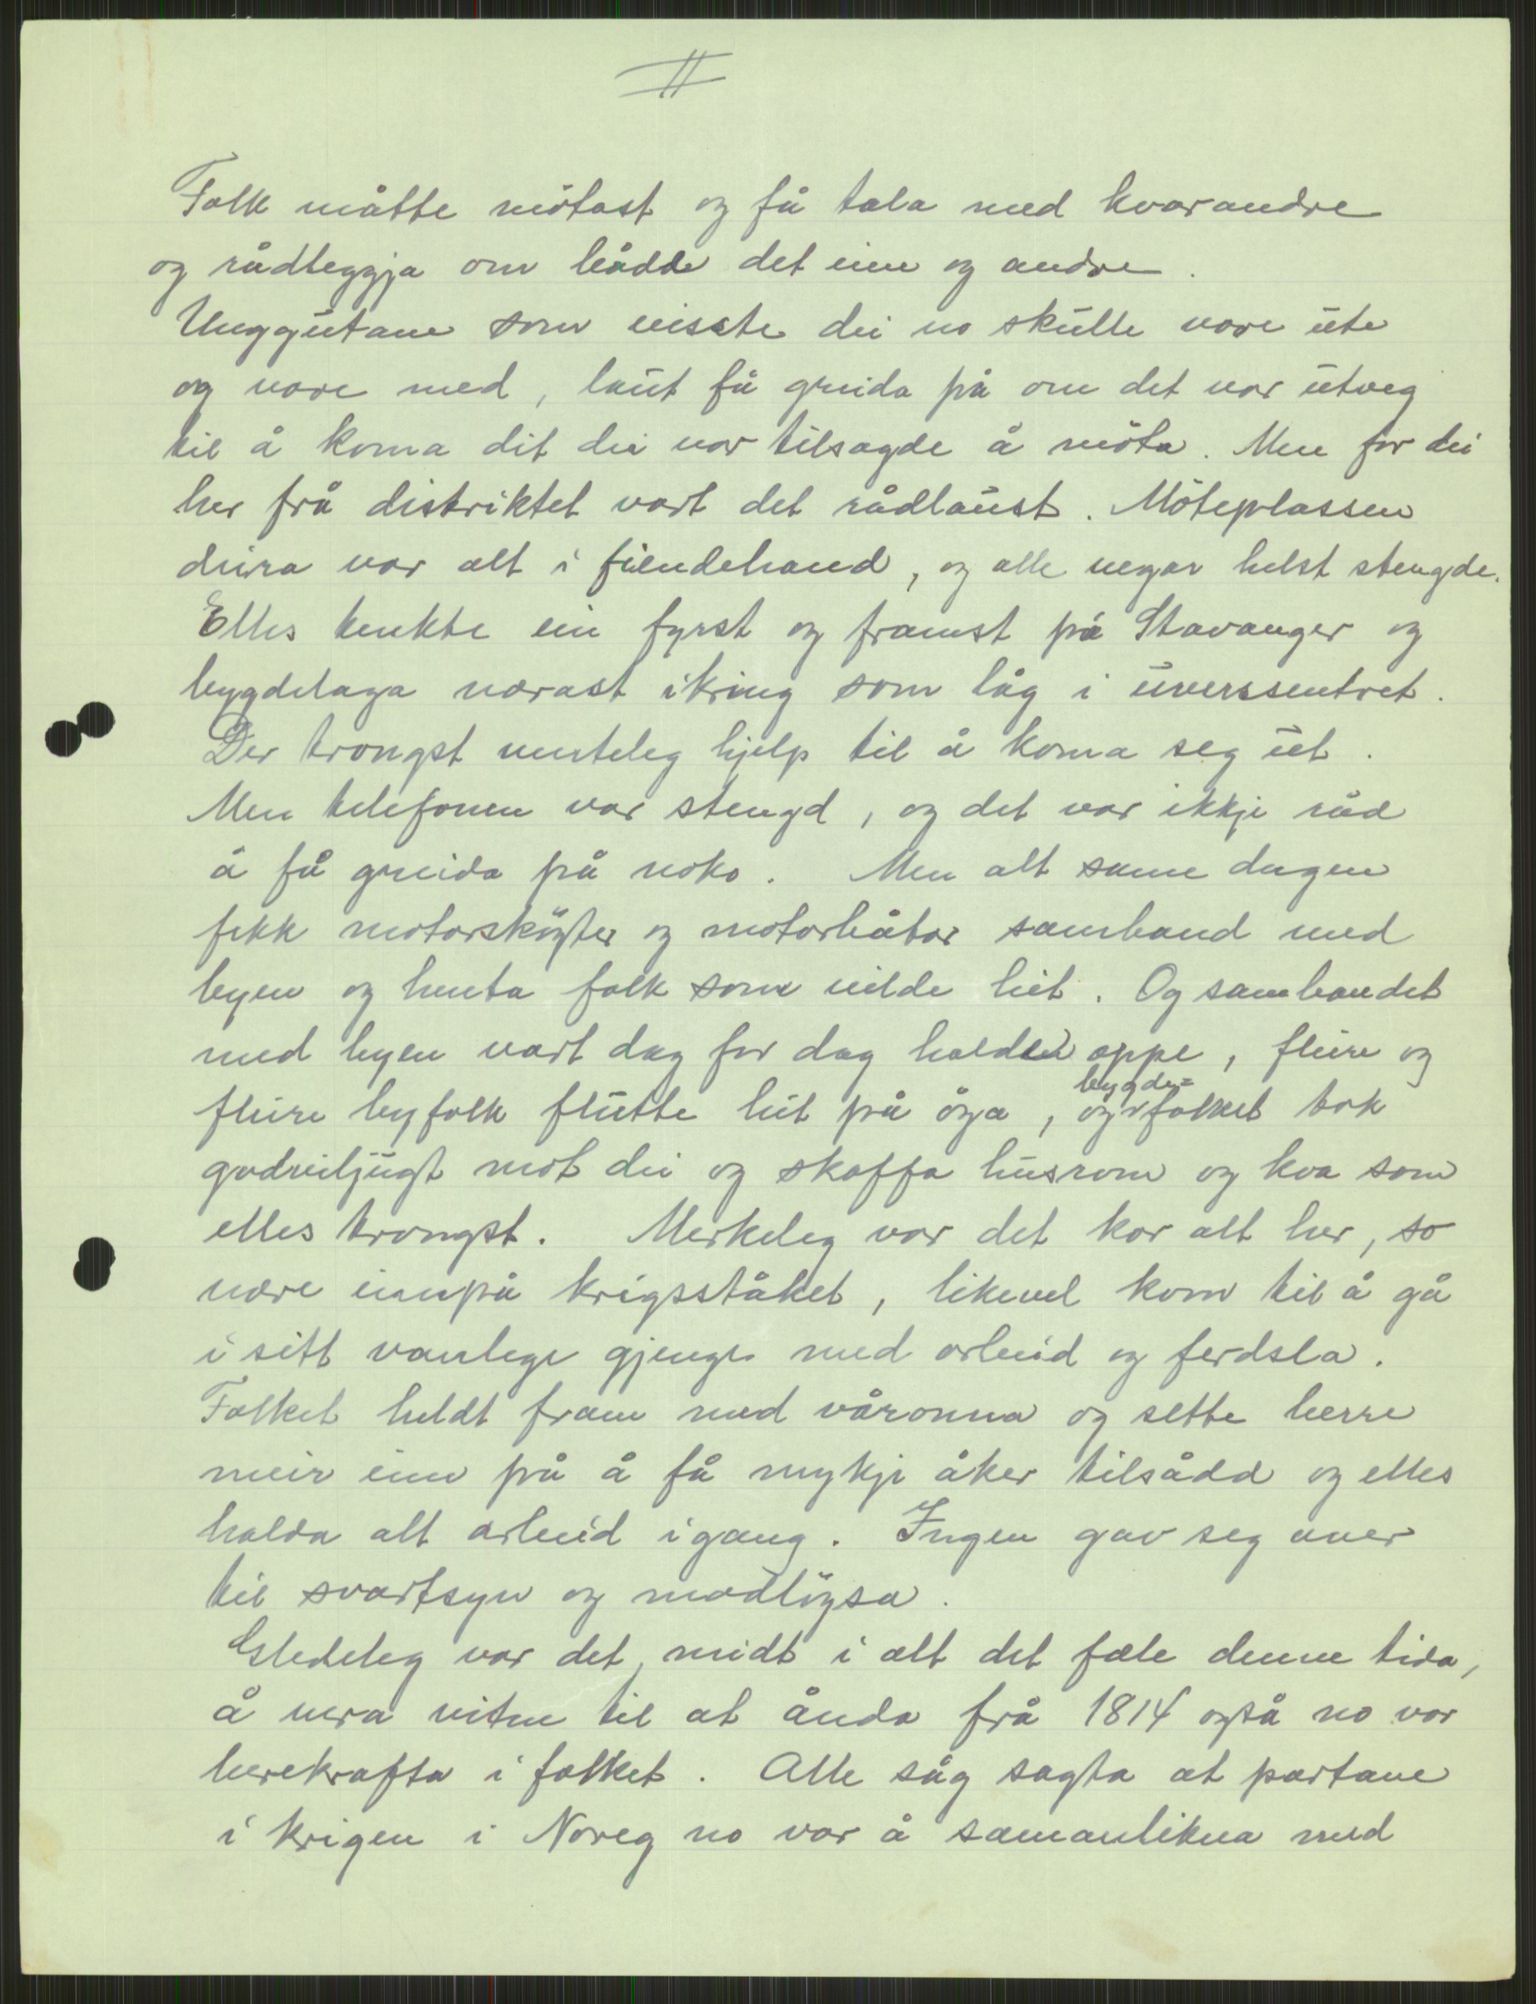 II
Folk måtte mötast og få tala med kvarandre
og rådleggja om bådde det eine og andre.
Unggutane som visste dei no skulle vore ute
og vore med, laut få greida på om det var utveg
til å koma dit dei var tilsagde å möta. Men for dei
her frå distriktet vart det rådlaust. Möteplassen
deira var alt i fiendehand, og alle vegar helst stengde.
Elles tenkte ein fyrst og framst på Stavanger og
bygdelaga nærast ikring som låg i uverssentret.
Der trongst venteleg hjelp til å koma seg ut.
Men telefonen var stengd, og det var ikkje råd
å få greida på noko. Men alt same dagen
fekk motorsköyter og motorbåtar samband med
byen og henta folk som vilde hit. Og sambandet
med byen vart dag for dag halde oppe, fleire og
fleire byfolk flutte hit på öya, og bygde=folket tok
godviljugt mot dei og skaffa husrom og kva som
elles trongst. Merkeleg var det kor alt her, so
nære innpå krigsståket, likevel kom til å gå
i sitt vanlege gjenge med arbeid og ferdsla.
Folket heldt fram med våronna og sette berre
meir inn på å få mykje åker tilsådd og elles
halda alt arbeid igang. Ingen gav seg over
til svartsyn og modlöysa.
Gledeleg var det, midt i alt det fæle denne tida,
å vera vitne til at ånda frå 1814 også no var
berekrafta i folket. Alle såg sagta at partane
i krigen i Noreg no var å samanlikna med